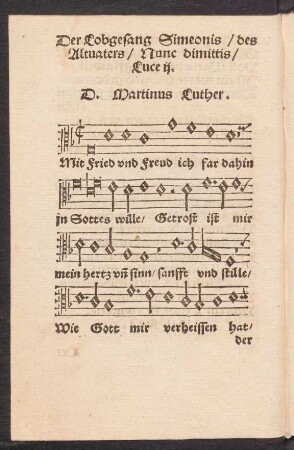 Der Lobgesang Simeonis / des
Altuaters / Nunc dimittis /
Luce ij.
D. Martinus Luther.
Mit Fried vnd Freud ich far dahin
jn Gottes wille / Getrost ist mir
mein hertz vñ sinn / sanfft vnd stille /
Wie Gott mir verheissen hat /
der